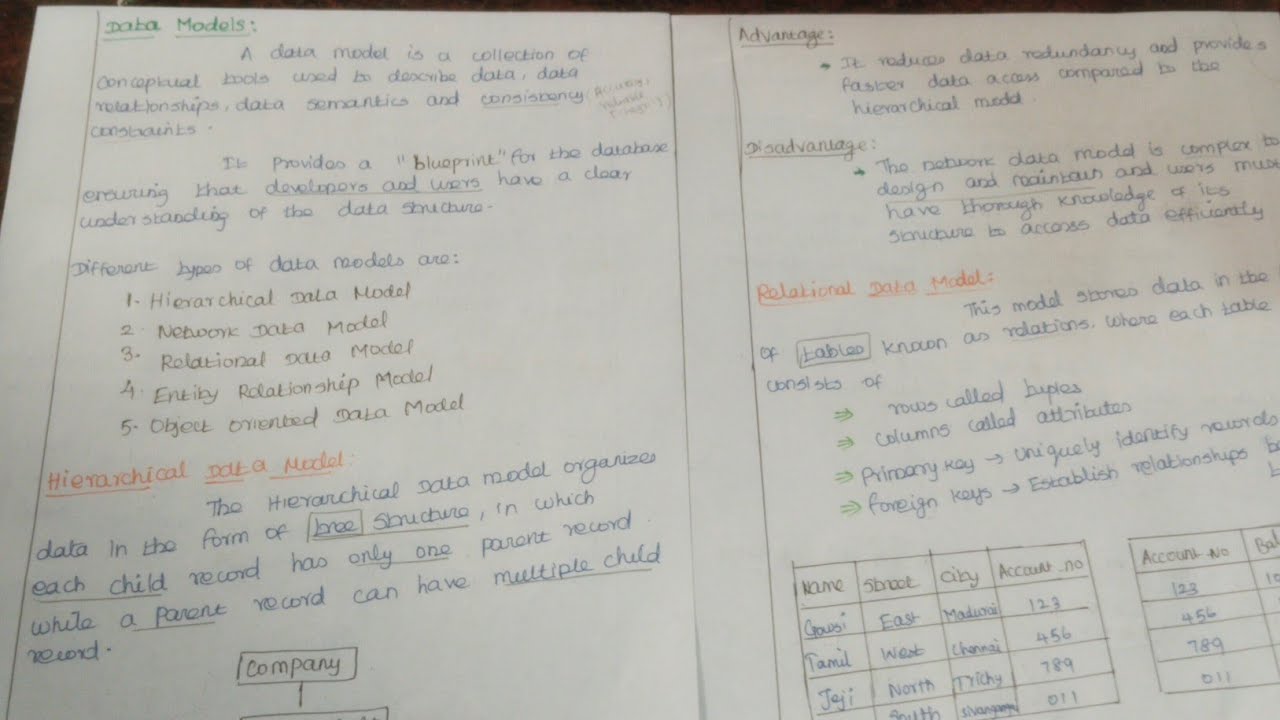 Data Models:
A data model is a collection of
conceptual tools used to describe data, data
relationships, data semantics and consistency (Accuracy,
constraints.
It provides a "blueprint" for the database
ensuring that developers and users have a clear
understanding of the data structure.
Different types of data models are:
1. Hierarchical Data Model
2. Network Data Model
3. Relational Data Model
4. Entity Relationship Model
5. Object oriented Data Model
Hierarchical Data Model:
The Hierarchical Data model organizes
data in the form of tree structure, in which
each child record has only one parent record
while a parent record can have multiple child
record.
Company
Advantage:
It reduces data redundancy and provides
faster data access compared to the
hierarchical model.
Disadvantage:
The network data model is complex to
design and maintain and users must
have thorough knowledge of its
structure to access data efficiently
Relational Data Model:
This model stores data in the
of tables known as relations, where each table
consists of
⇒ rows called tuples
⇒ columns called attributes
⇒ Primary key → Uniquely identify records
⇒ foreign keys → Establish relationships
Name Street City Account_no
Gowsi East Madurai 123
Tamil West Chennai 456
Jeji North Trichy 789
South 011
Account_No
123
456
789
011